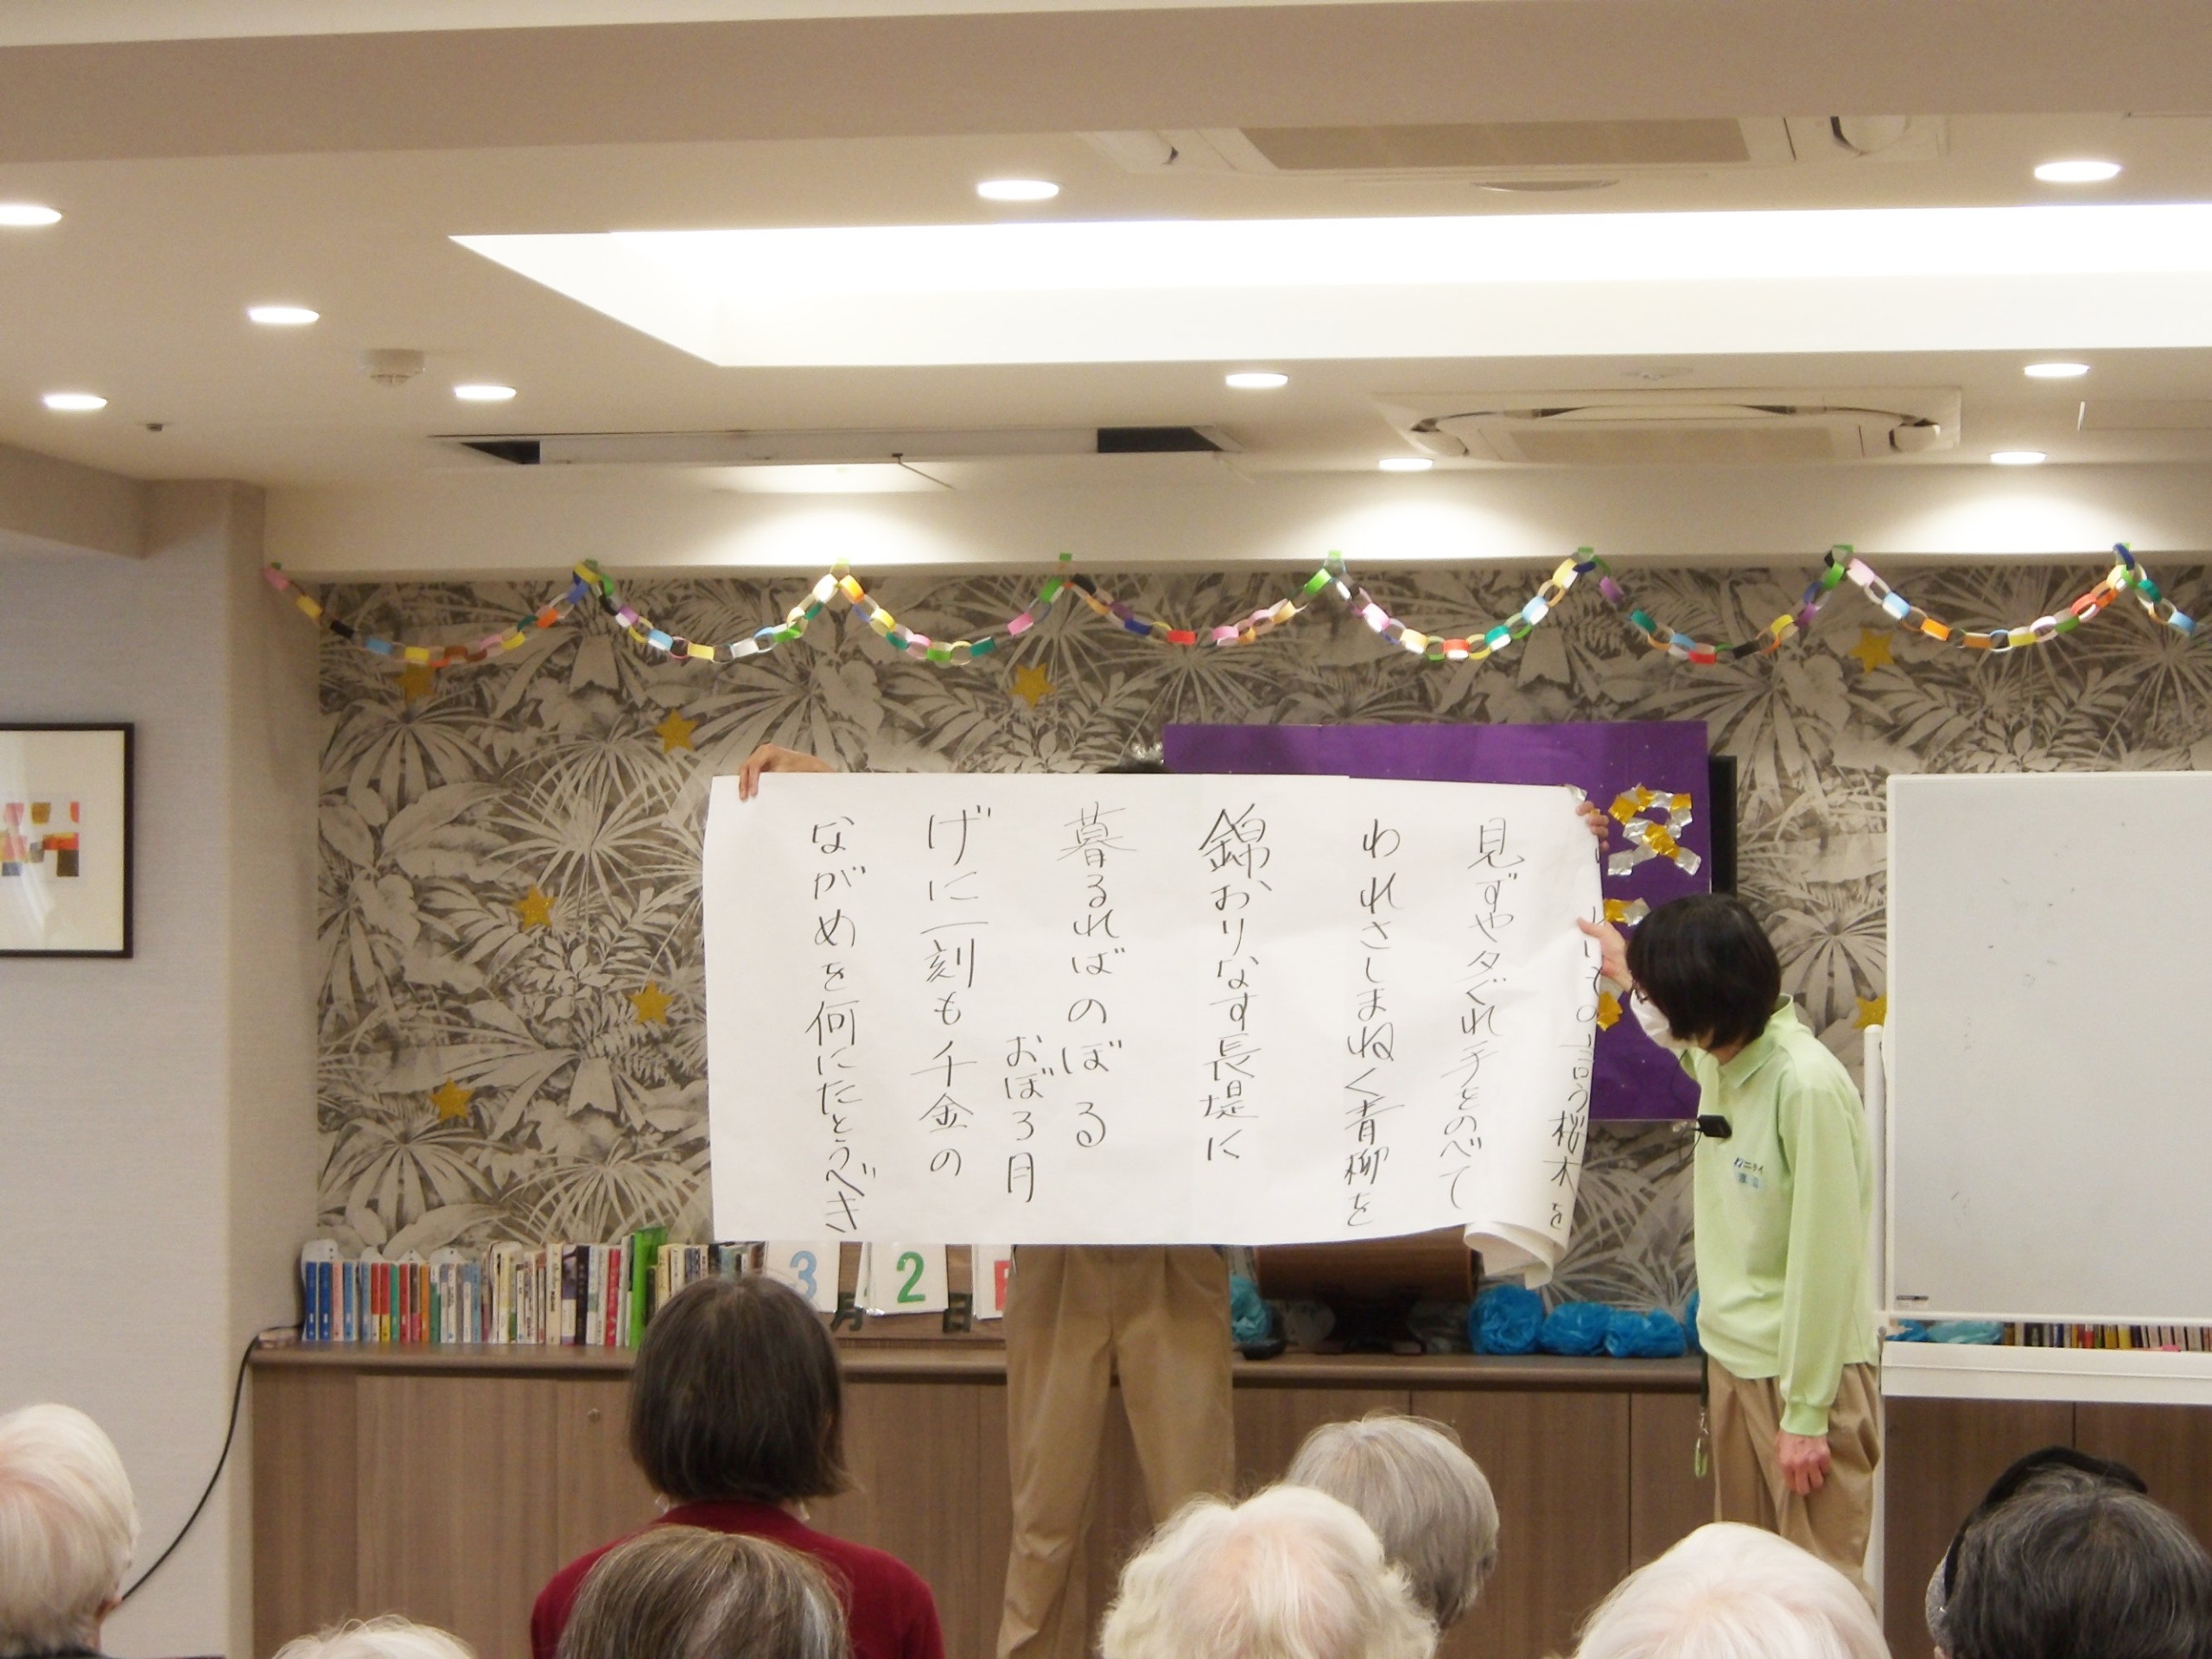 言う桜木を
見ずや夕ぐれ手をのべて
われさしまねく青柳を
錦おりなす長堤に
暮るればのぼる
おぼろ月
げに一刻も千金の
ながめを何にたとうべき
3月2日
ニチイ